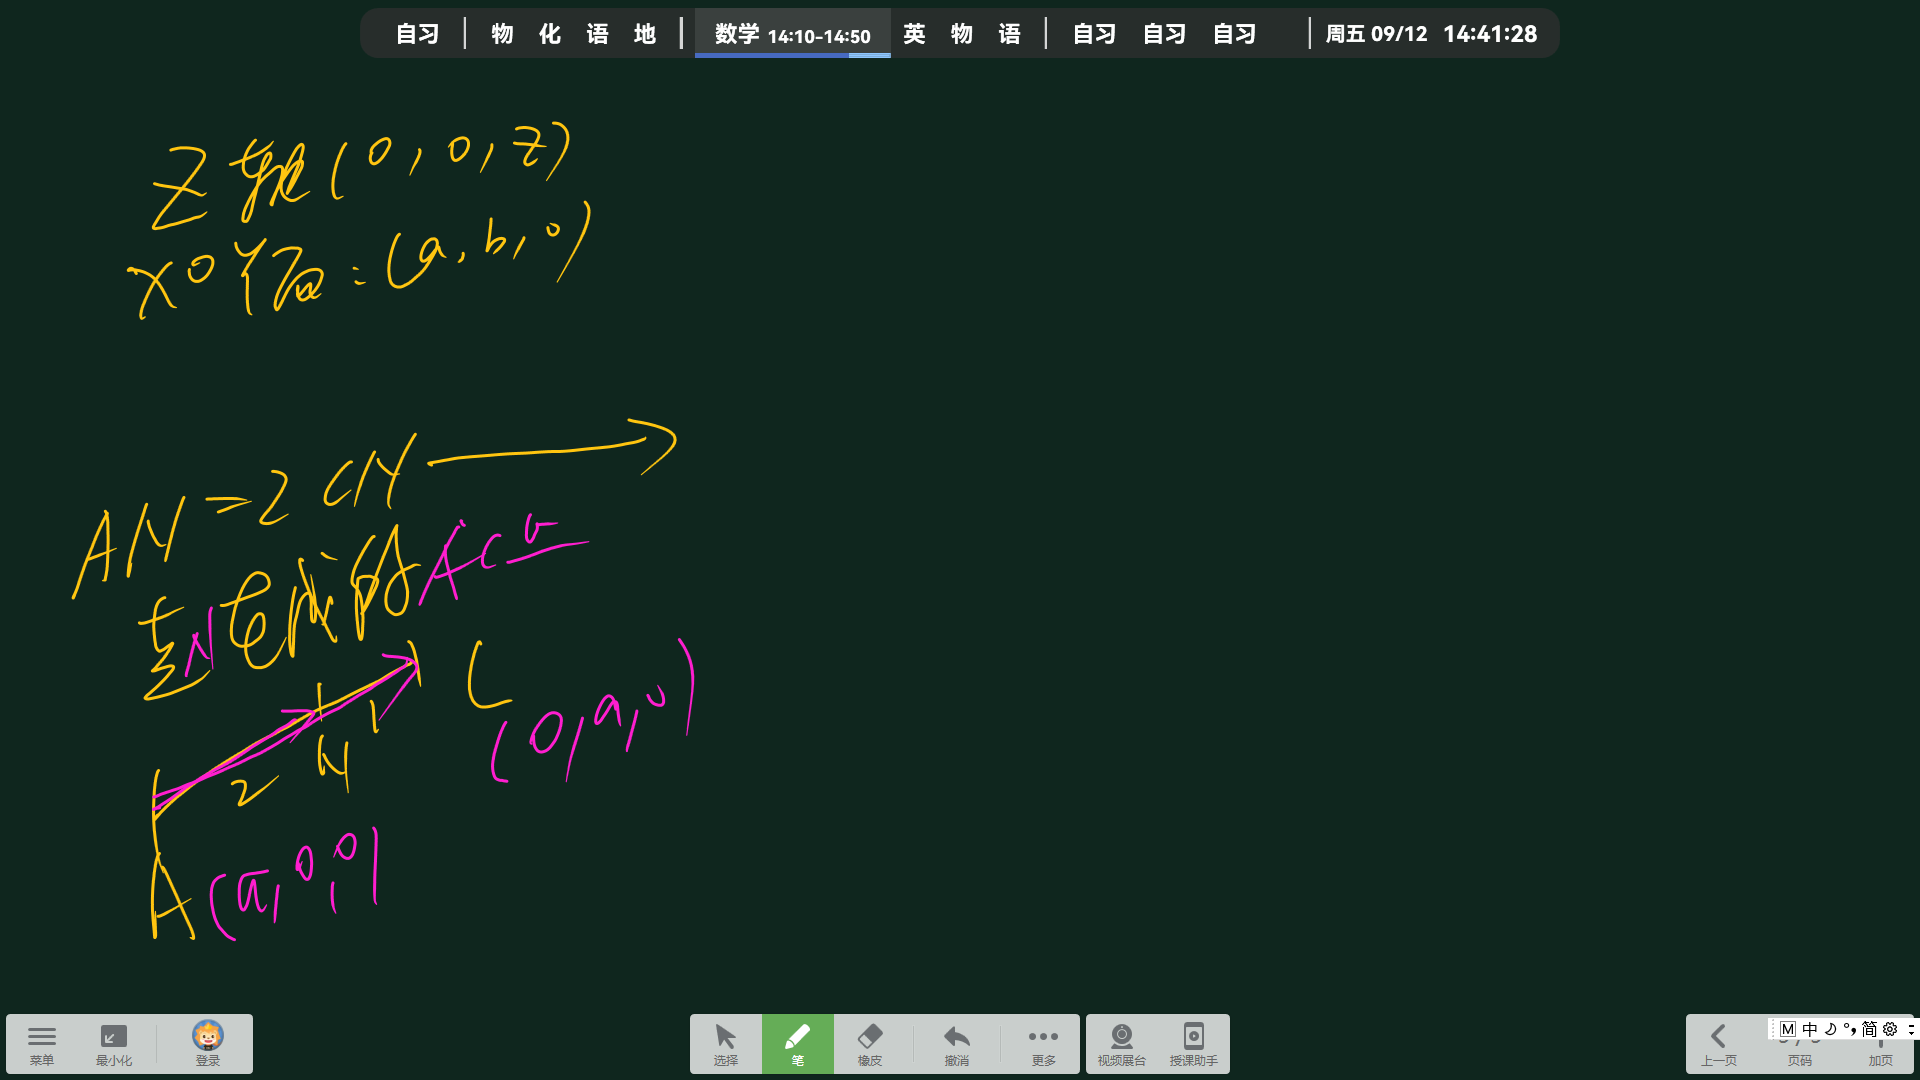 自习 | 物 化 语 地 | 数学 14:10-14:50 英 物 语 | 自习 自习 自习 | 周五 09/12 14:41:28
Z轴(0,0,z)
XOY面:(a,b,0)
AN=2CN
N
AC
C
1
(0,a,0)
N
2
A(a,0,0)
菜单 最小化 登录 选择 笔 橡皮 撤消 更多 视频展台 授课助手 上一页 页码 加页
M 中 简